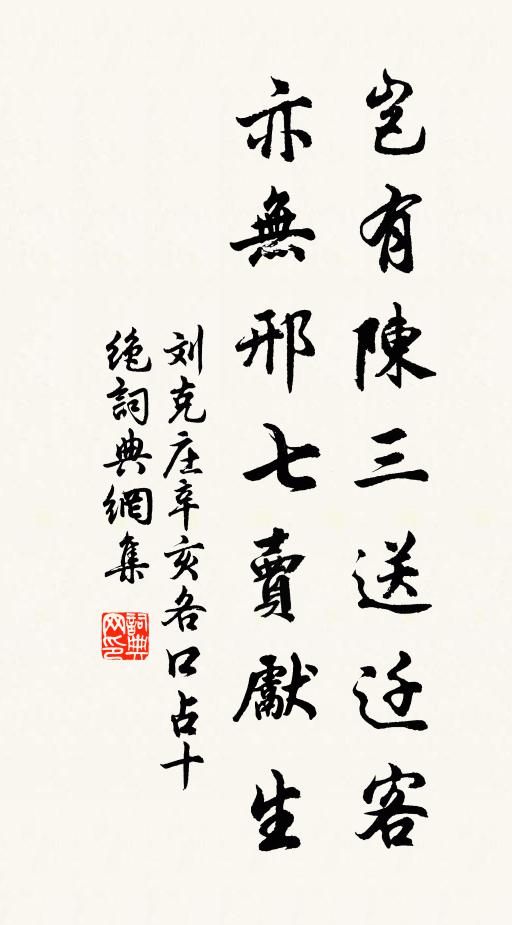 岂有陳三送迁客
亦無邢七賣獻生
刘克庄辛亥各口占十
绝詞典網集
詞典网印